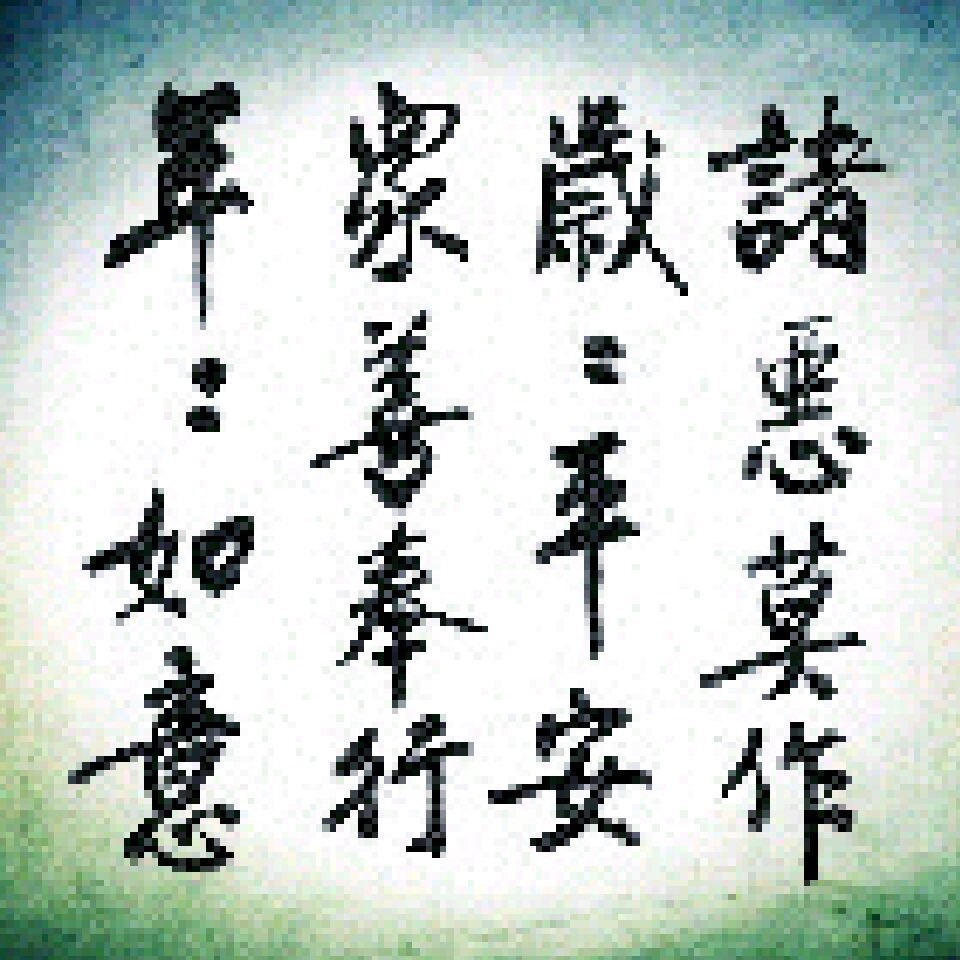 諸惡莫作
歲:平安
眾善奉行
年:如意